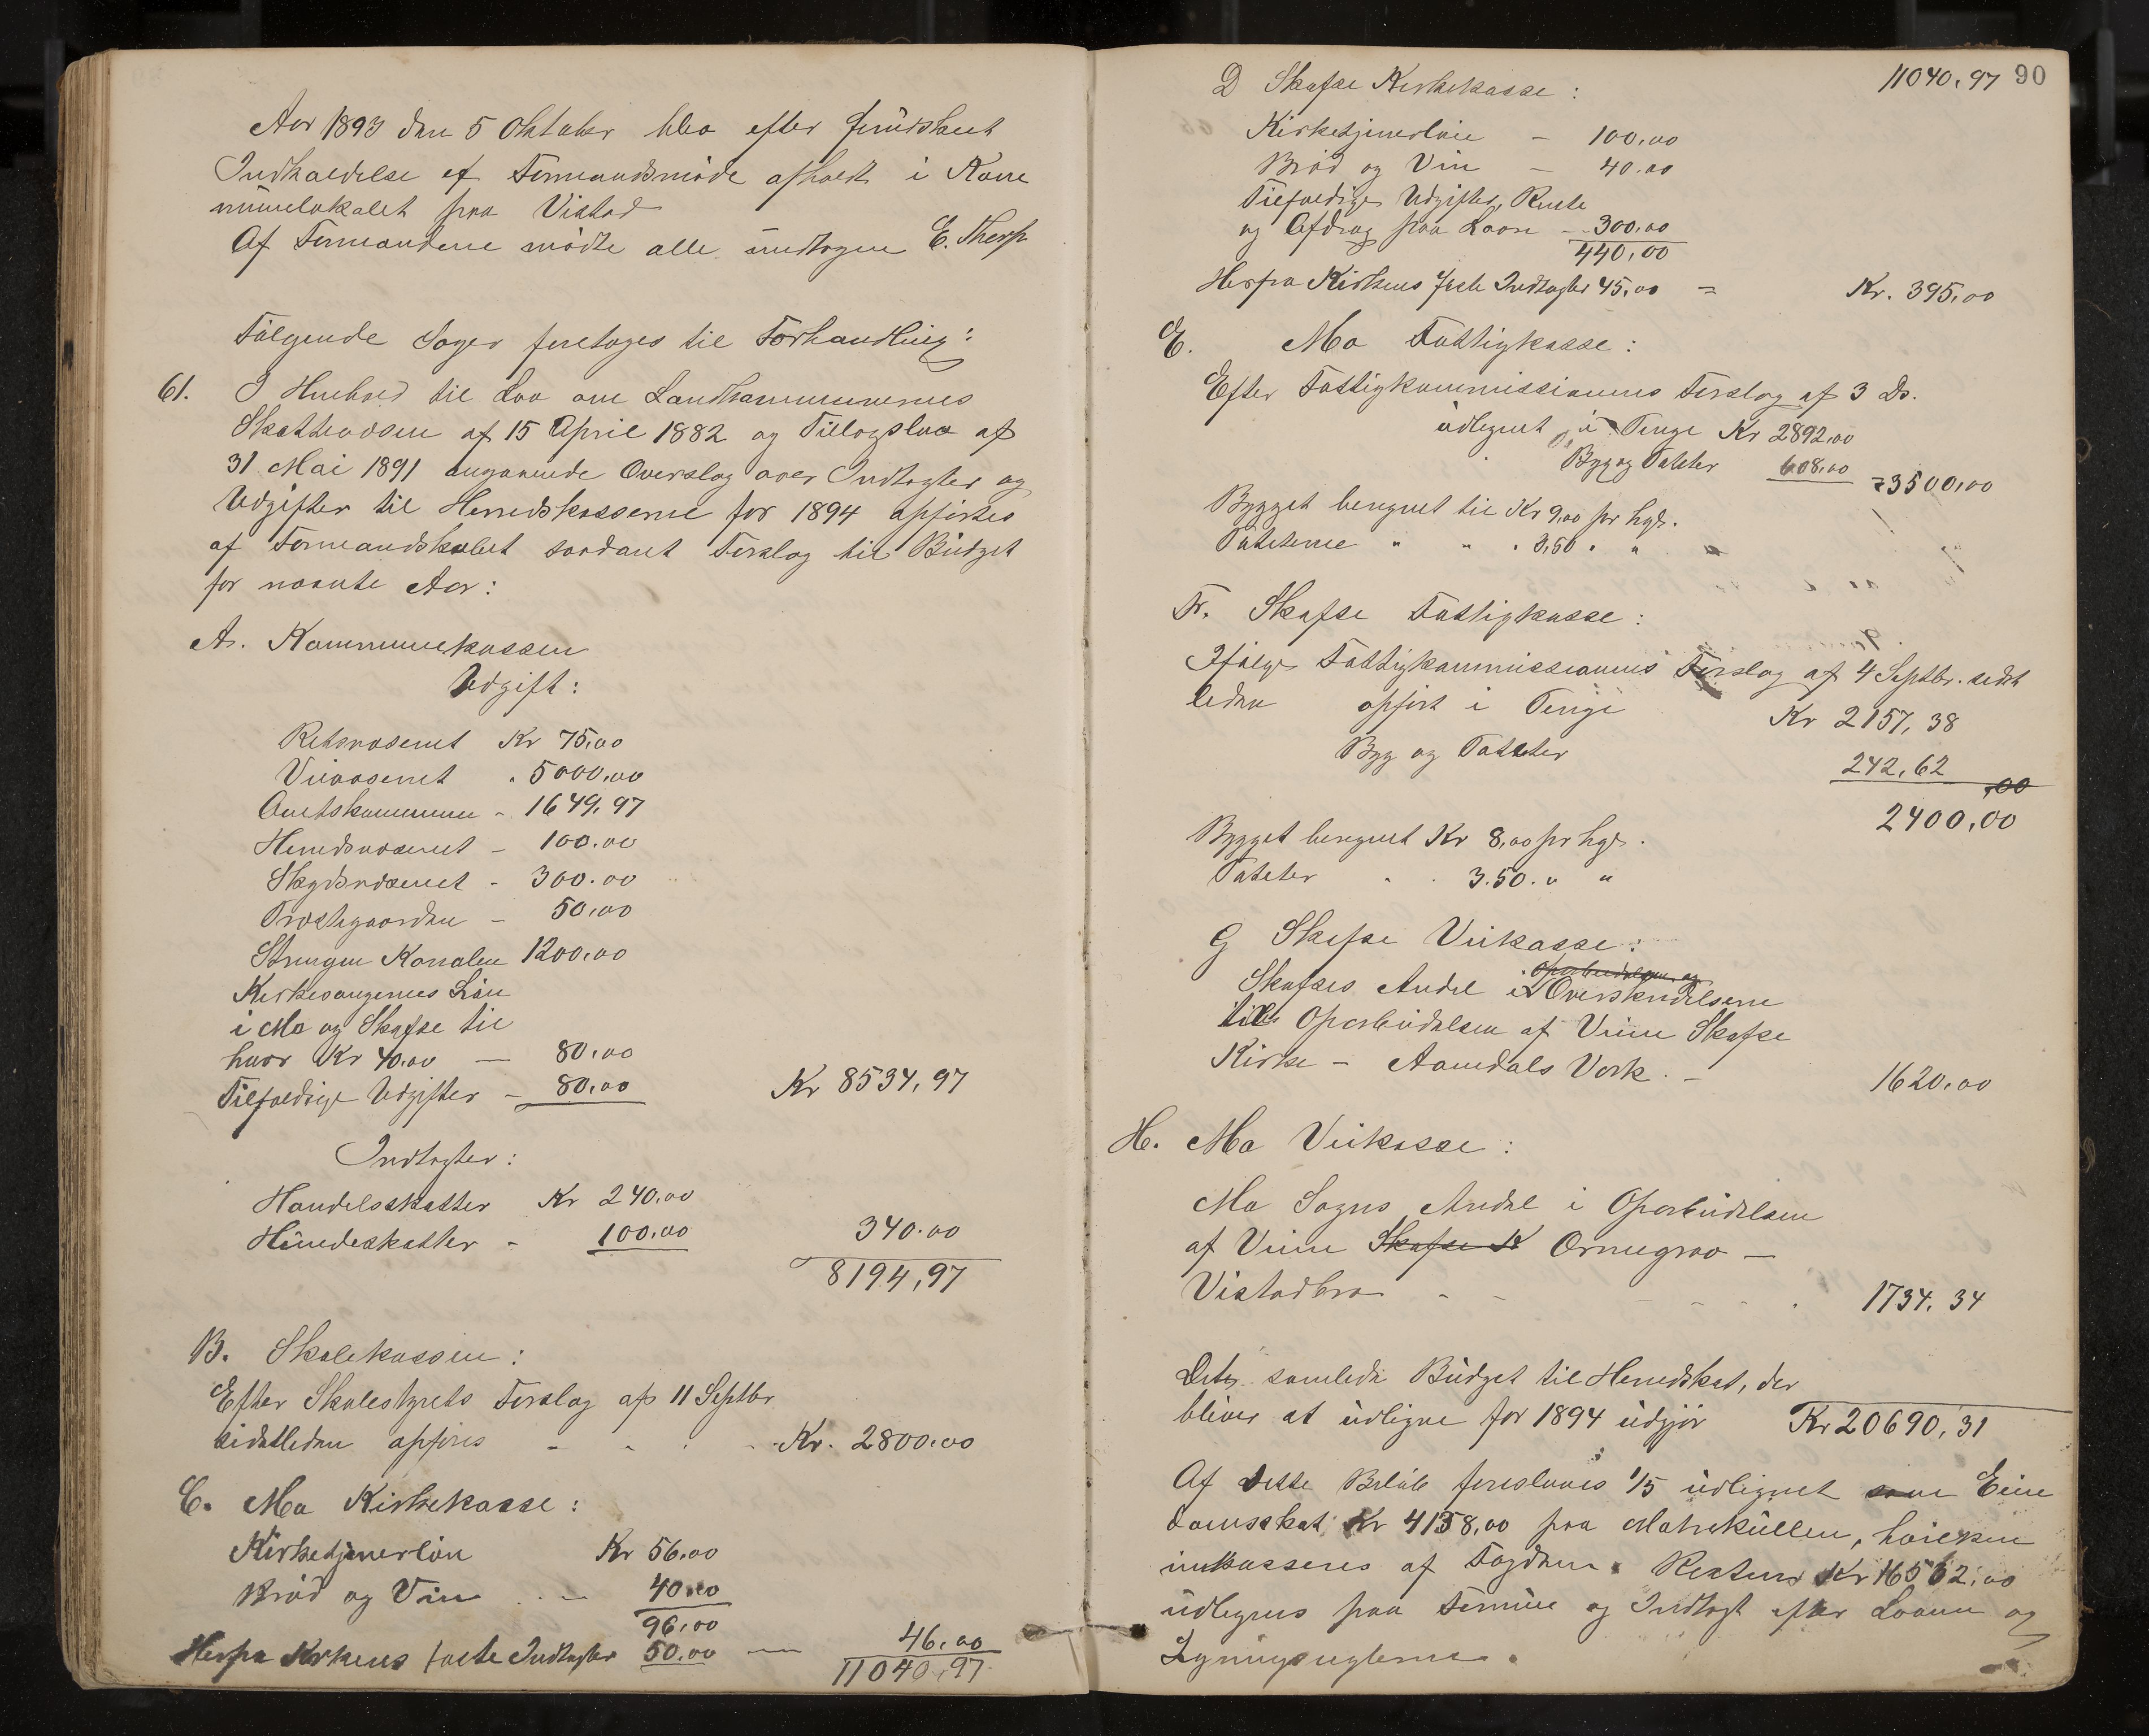 Aar 1893 den 5 Oktober blev efter forudskeet
Indkaldelse et Formandsmöde afholdt i Kom
munelokalet paa Vistad
Af Formændene mödte alle undtagen E. Thorp
Fölgende Sager foretoges til Forhandling:
61. I Henhold til Lov om Landkommunernes
Skattevæsen af 15 April 1882 og Tillægslov af
31 Mai 1891 angaaende Overslag over Indtægter og
Udgifter til Herredskasserne for 1894 opförtes
af Formandskabet saadant Forslag til Büdget
for nævnte Aar:
A. Kommunekassen
Udgift:
Retsvæsenet Kr 75,00
Veivæsenet " 5000,00
Amtskommunen - 1649,97
Herredsvæsenet - 100.00
Skydsvæsenet - 300.00
Præstegaarden - 50,00
Strængen Kanalen 1200,00
Kirkesangernes Lön
i Mo og Skafse til
hver Kr 40.00 — 80,00
Tilfældige Udgifter - 80,00 Kr 8534,97
Indtægter:
Handelsskatter Kr 240,00
Hündeskatter - 100,00 340.00
8194,97
B. Skolekassen:
Efter Skolestyrets Forslag af 11 Septbr
sidstleden opföres - - - Kr. 2800.00
C. Mo Kirkekasse:
Kirketjenerlön Kr 56,00
Bröd og Vin - 40.00
96,00
Herfra Kirkens faste Indtægter 50.00 — 46,00
11040,97
11040,97 90
D Skafse Kirkekasse:
Kirketjenerlön - 100,00
Bröd og Vin - 40.00
Tilfældige Udgifter, Rente
og Afdrag paa Laan - 300,00
440,00
Herfra Kirkens faste Indtægter 45,00 = Kr. 395,00
E. Mo Fattigkasse:
Efter Fattigkommissionens Forslag af 3 Ds.
udlignet i Penge Kr 2892,00
Byg og Poteter 608,00 = 3500,00
Bygget beregnet til Kr 9,00 pr hgl.
Poteterne " " " 3,50 " "
Fr. Skafse Fattigkasse:
Ifölge Fattigkommissionens Forslag af 4 Septbr. sidst
leden opfört i Penge Kr 2157,38
Byg og Poteter 242,62 ,00
2400,00
Bygget beregnet Kr 8,00 pr hgl.
Poteter " " 3.50 " "
G Skafse Veikasse:
Oparbeidelsen og
Skafses Andel i Overskridelserne
til Oparbeidelsen af Veien Skafse
Kirke - Aamdals Verk. - 1620,00
H. Mo Veikasse:
Mo Sogns Andel i Oparbeidelsen
af Veien Skafse K Ormegrav —
Vistadbro - - - - - 1734,34
Det samlede Büdget til Herredskat, der
bliver at udligne for 1894 udgjör Kr 20690,31
Af dette Belöb foreslaaes 1/5 udlignet som Eien
domsskat, Kr 4138,00 paa Matrikülen, hvilken
inkasseres af Fogden. Resten Kr 16552,00
udlignes paa Formue og Indtægt efter Loven og
Ligningsreglerne.